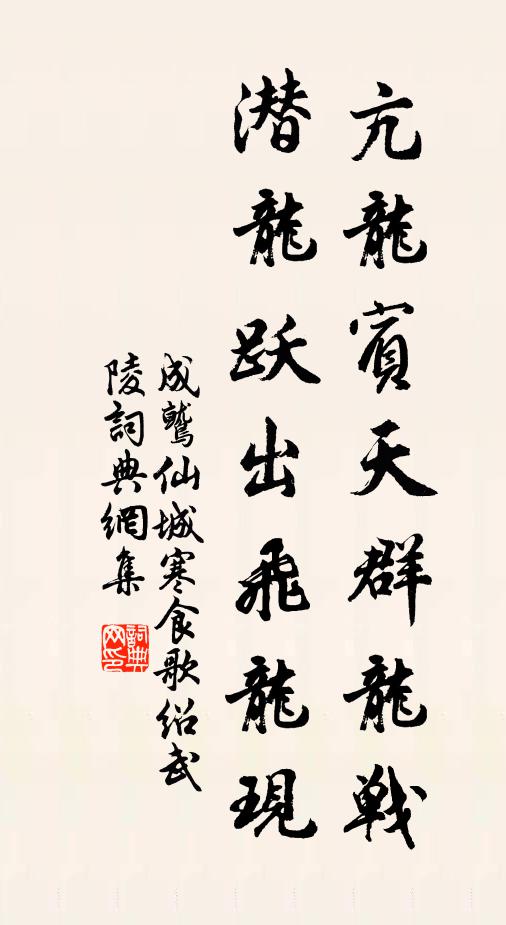 亢龍賓天群龍戦
潜龍跃出飛龍現
成鷲仙城寒食歌绍武
陵詞典網集
詞典
网印